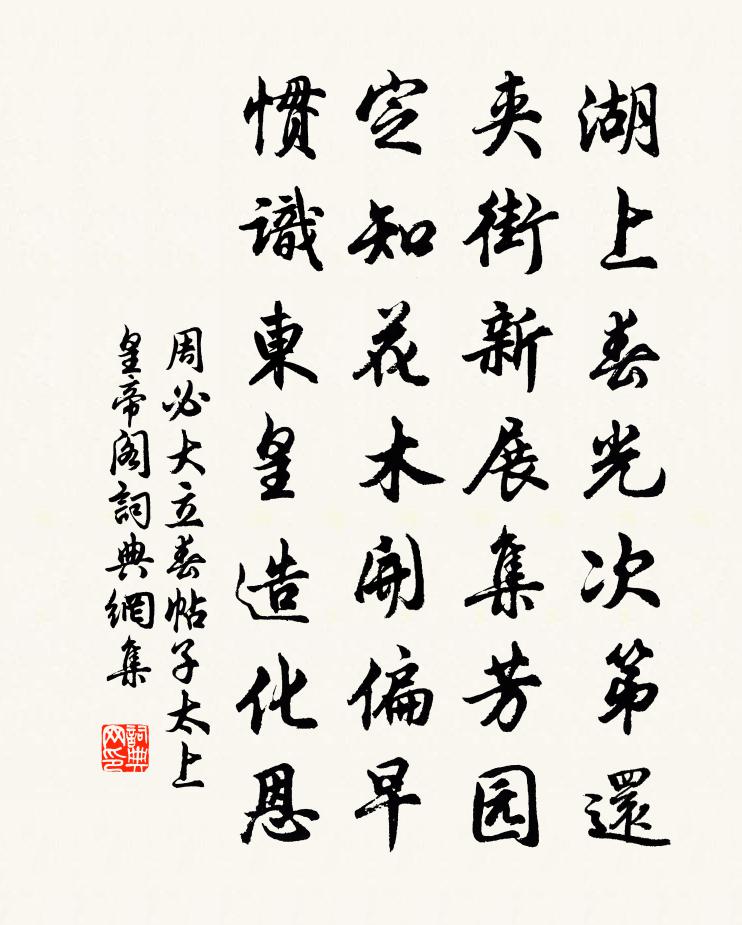 湖上春光次第還
夾街新展集芳园
定知花木開偏早
慣識東皇造化恩
周必大立春帖子太上
皇帝阁詞典網集
詞典网印